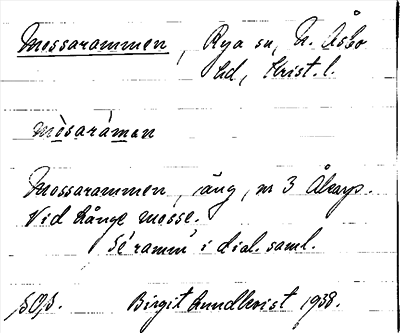 Mossarammen, Rya sn, N. Åsbo
hd, Krist. l.
mòsaráman
Mossarammen, äng, nr 3 Åkarp.
Vid Långe mosse.
Se 'ramm' i dial. saml.
SOS. Birgit Lundkvist 1938.